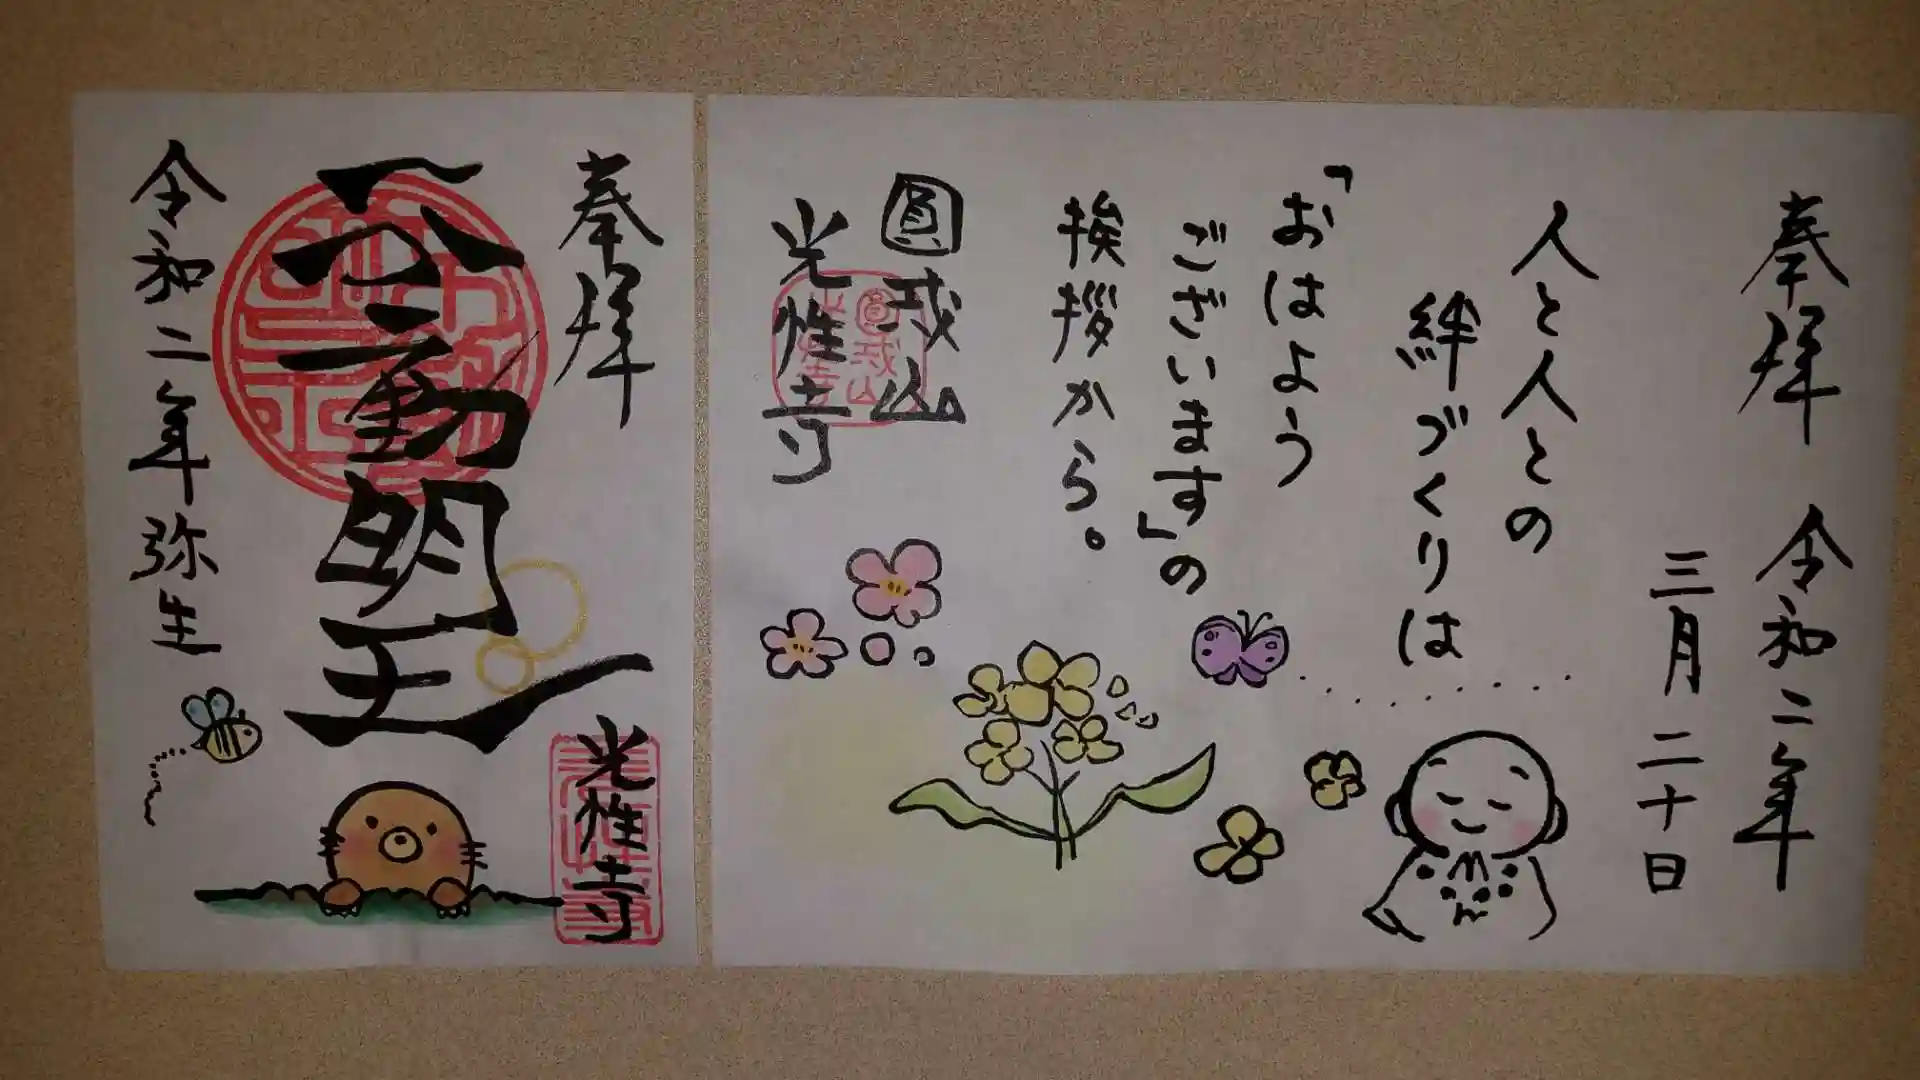 奉拝 令和二年
三月二十日
人と人との
絆づくりは
「おはよう
ございます」の
挨拶から。
圓戒山
光性寺
奉拝
不動明王
光性寺
令和二年弥生